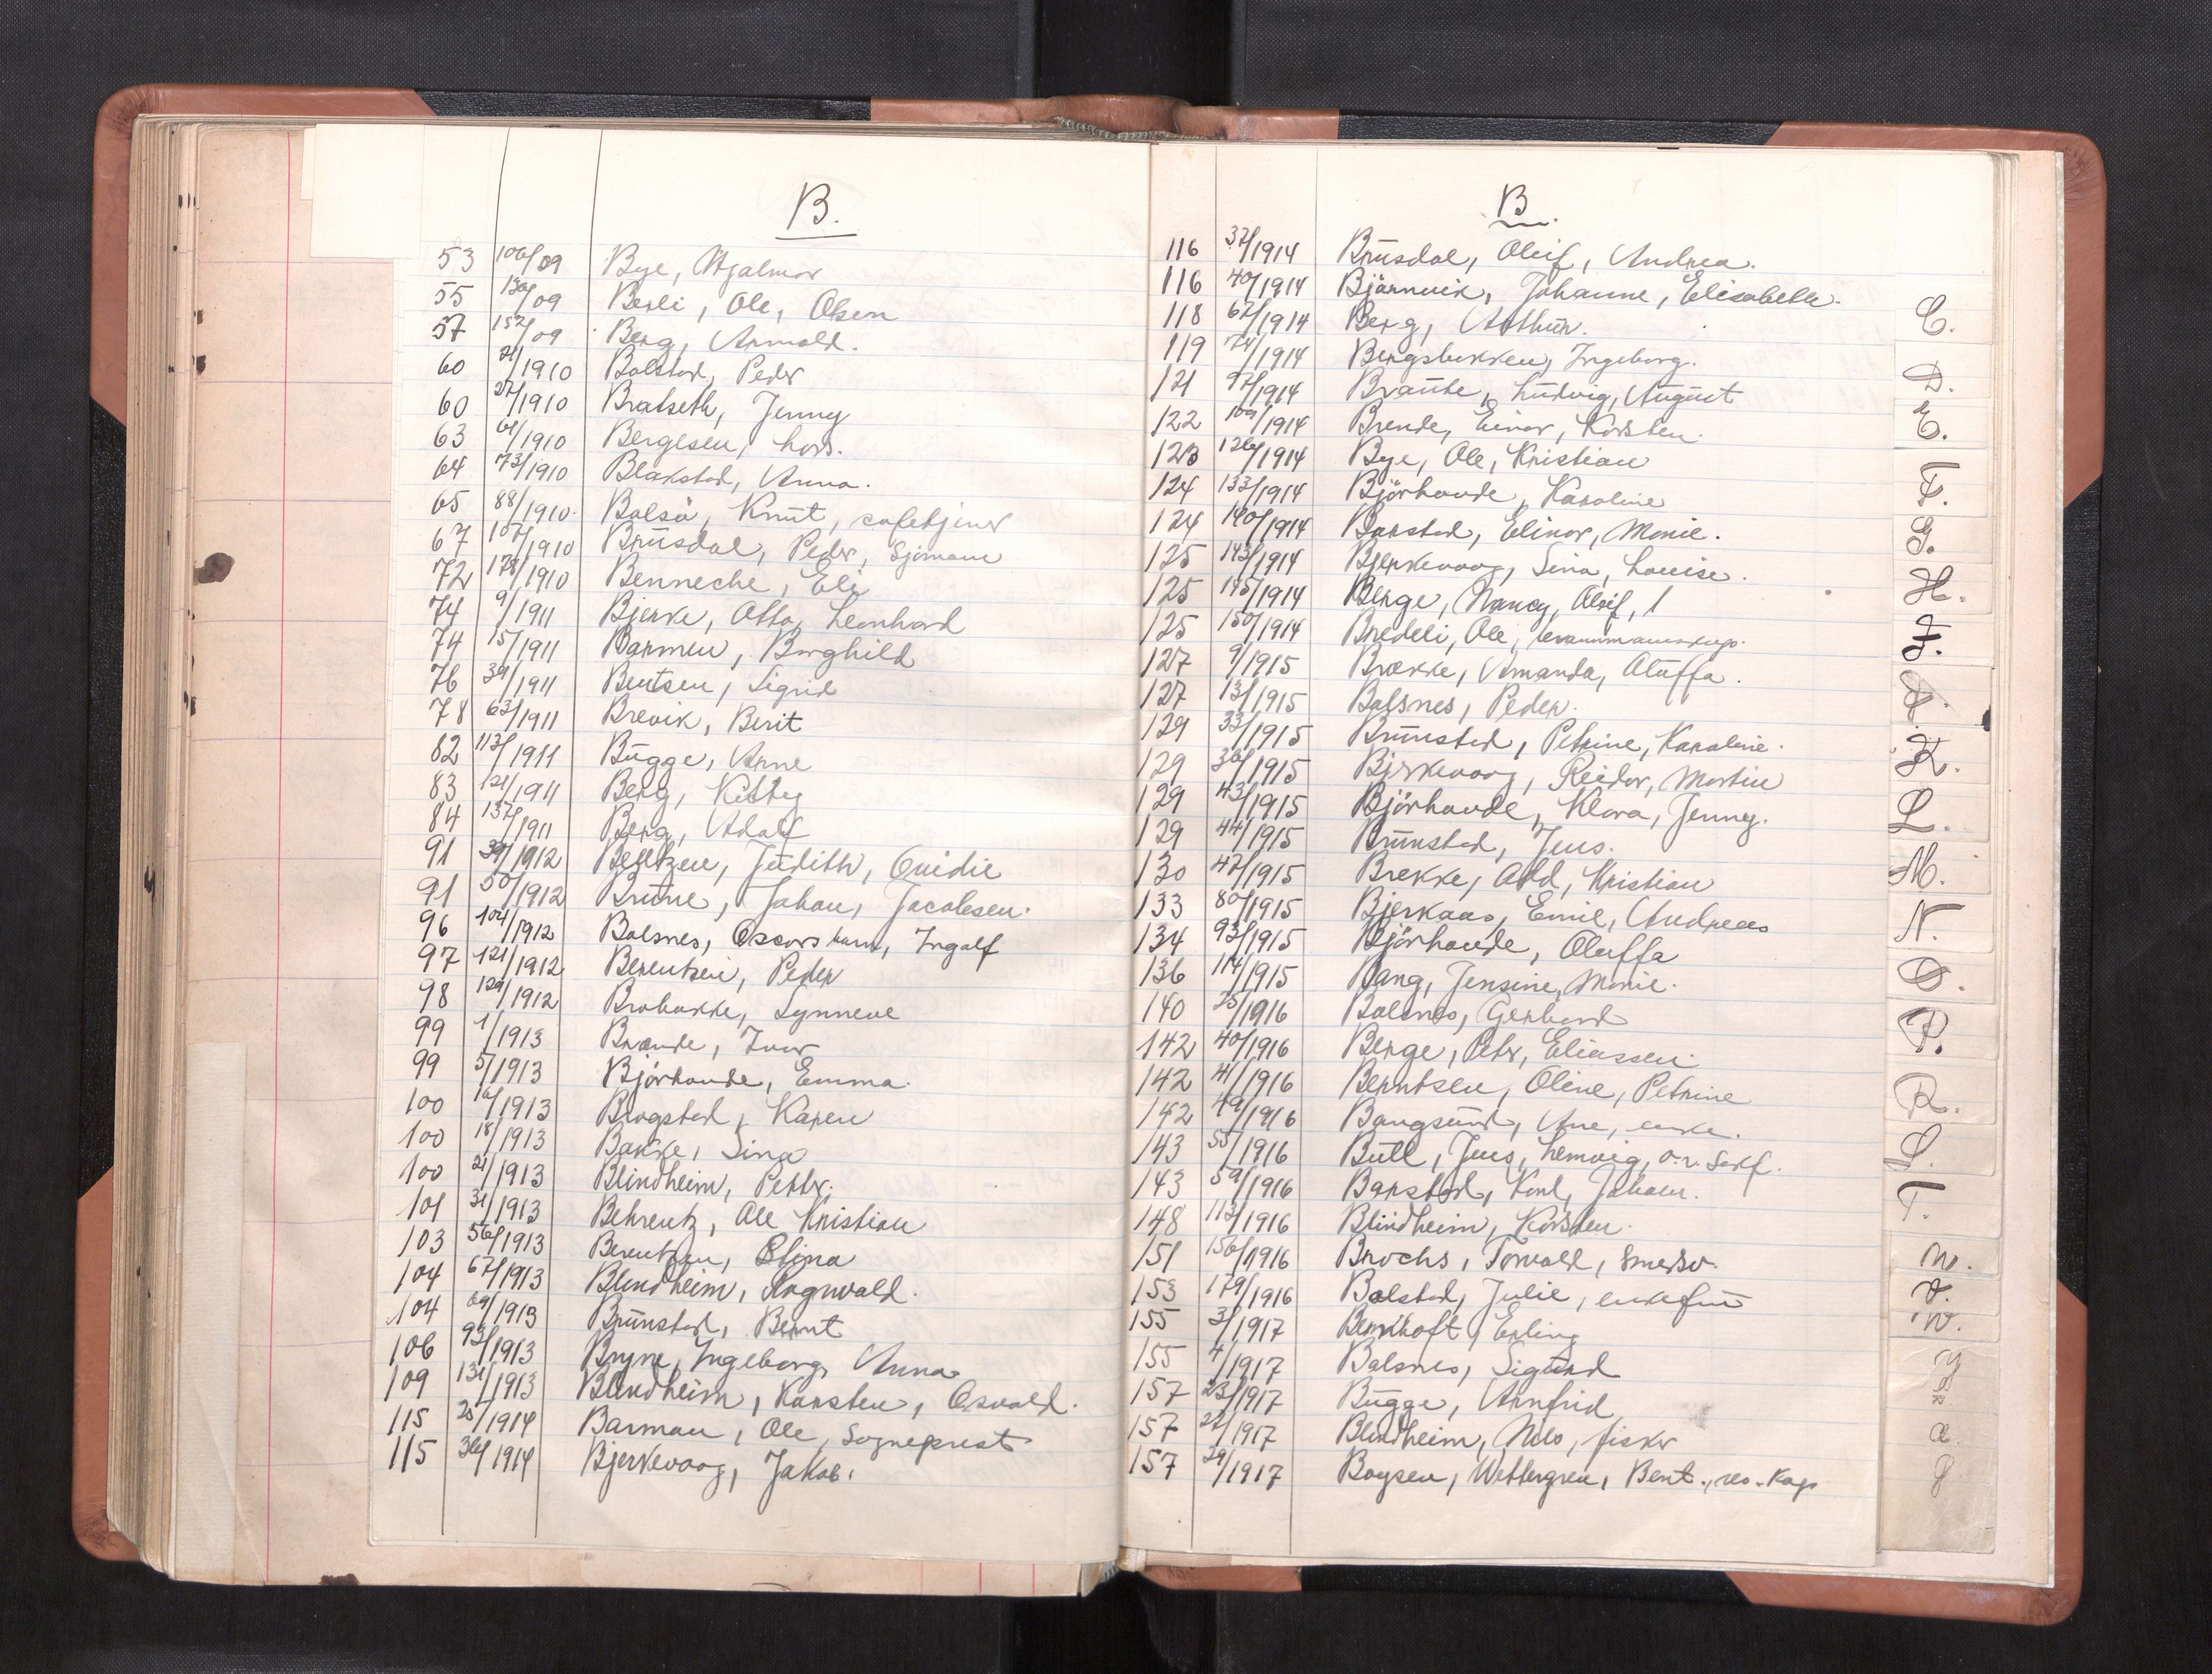 B.
53 106/09 Bye, Hjalmar
55 130/09 Berli, Ole, Olsen
57 152/09 Berg, Arnold.
60 21/1910 Bolstad, Peder
60 27/1910 Bratseth, Jenny
63 61/1910 Bergesen, Lars.
64 73/1910 Blakstad, Anna.
65 88/1910 Balsö, Knut, cafetjener
67 107/1910 Brusdal, Peder, Sjömann
72 178/1910 Benneche, Eli
74 9/1911 Bjerke, Otto, Leonhard
74 15/1911 Barmen, Borghild
76 39/1911 Bentsen, Sigrid
78 63/1911 Brevik, Berit
82 113/1911 Bugge, Arne
83 121/1911 Berg, Kitty
84 137/1911 Berg, Adolf
91 39/1912 Beltzen, Judith, Ovidie
91 50/1912 Brune, Johan, Jacobsen.
96 104/1912 Balsnes, Oscars barn, Ingolf
97 121/1912 Berentzen, Peder
98 129/1912 Brobakke, Synneve
99 1/1913 Brande, Ivar
99 5/1913 Björhovde, Emma.
100 16/1913 Brogstad, Karen
100 18/1913 Bakke, Sina
100 21/1913 Blindheim, Petter.
101 31/1913 Behrentz, Ole Kristian
103 56/1913 Berentzen, Elina
104 67/1913 Blindheim, Ragnvald.
104 69/1913 Brunstad, Bernt
106 93/1913 Bryne, Ingeborg, Anna
109 131/1913 Blindheim, Karsten, Osvald.
115 25/1914 Barman, Ole, Sogneprest
115 36/1914 Bjerkevoag, Jakob.
B.
116 37/1914 Brusdal, Oleif, Andrea.
116 40/1914 Björnvik, Johanne, Elisabeth.
118 67/1914 Berg, Arthur.
119 74/1914 Bergsbakken, Ingeborg.
121 97/1914 Braute, Ludvig, August
122 109/1914 Brende, Einar, Korsten.
123 126/1914 Bye, Ole, Kristian
124 133/1914 Björhovde, Karoline
124 140/1914 Barstad, Elinor, Marie.
125 143/1914 Bjerkevoag, Sina, Louise.
125 145/1914 Berge, Nancy, Oleif, 1
125 150/1914 Bredeli, Ole,
127 9/1915 Brække, Amanda, Oluffa.
127 13/1915 Balsnes, Peder.
129 33/1915 Brunstad, Petrine, Karoline.
129 36/1915 Bjerkevoag, Reidar, Martin
129 43/1915 Björhovde, Klara, Jenny.
129 44/1915 Brunstad, Jens.
130 47/1915 Brekke, Odd, Kristian
133 80/1915 Bjerkaas, Emil, Andreas
134 93/1915 Björhovde, Oluffa
136 114/1915 Bang, Jensine, Marie.
140 25/1916 Balsnes, Gerhard
142 40/1916 Berge, Peter, Eliassen.
142 41/1916 Berntsen, Oline, Petrine
142 49/1916 Bangsund, Ane, enke.
143 55/1916 Bull, Jens, Lemvig, o.r. Sakf.
143 59/1916 Barstad, Karl, Johan.
148 113/1916 Blindheim, Korsten.
151 156/1916 Brochs, Torvald, Smedsv.
153 179/1916 Bolstad, Julie, enkefru
155 3/1917 Berkhoft, Erling
155 4/1917 Balsnes, Sigurd
157 23/1917 Bugge, Arnfrid
157 27/1917 Blindheim, Nils, fisker
157 29/1917 Boysen, Wettergren, Bent., res. Kap
C.
D.
E.
F.
G.
H.
I.
J.
K.
L.
M.
N.
O.
P.
R.
S.
T.
U.
V.
W.
Y
Z
Æ
Ø